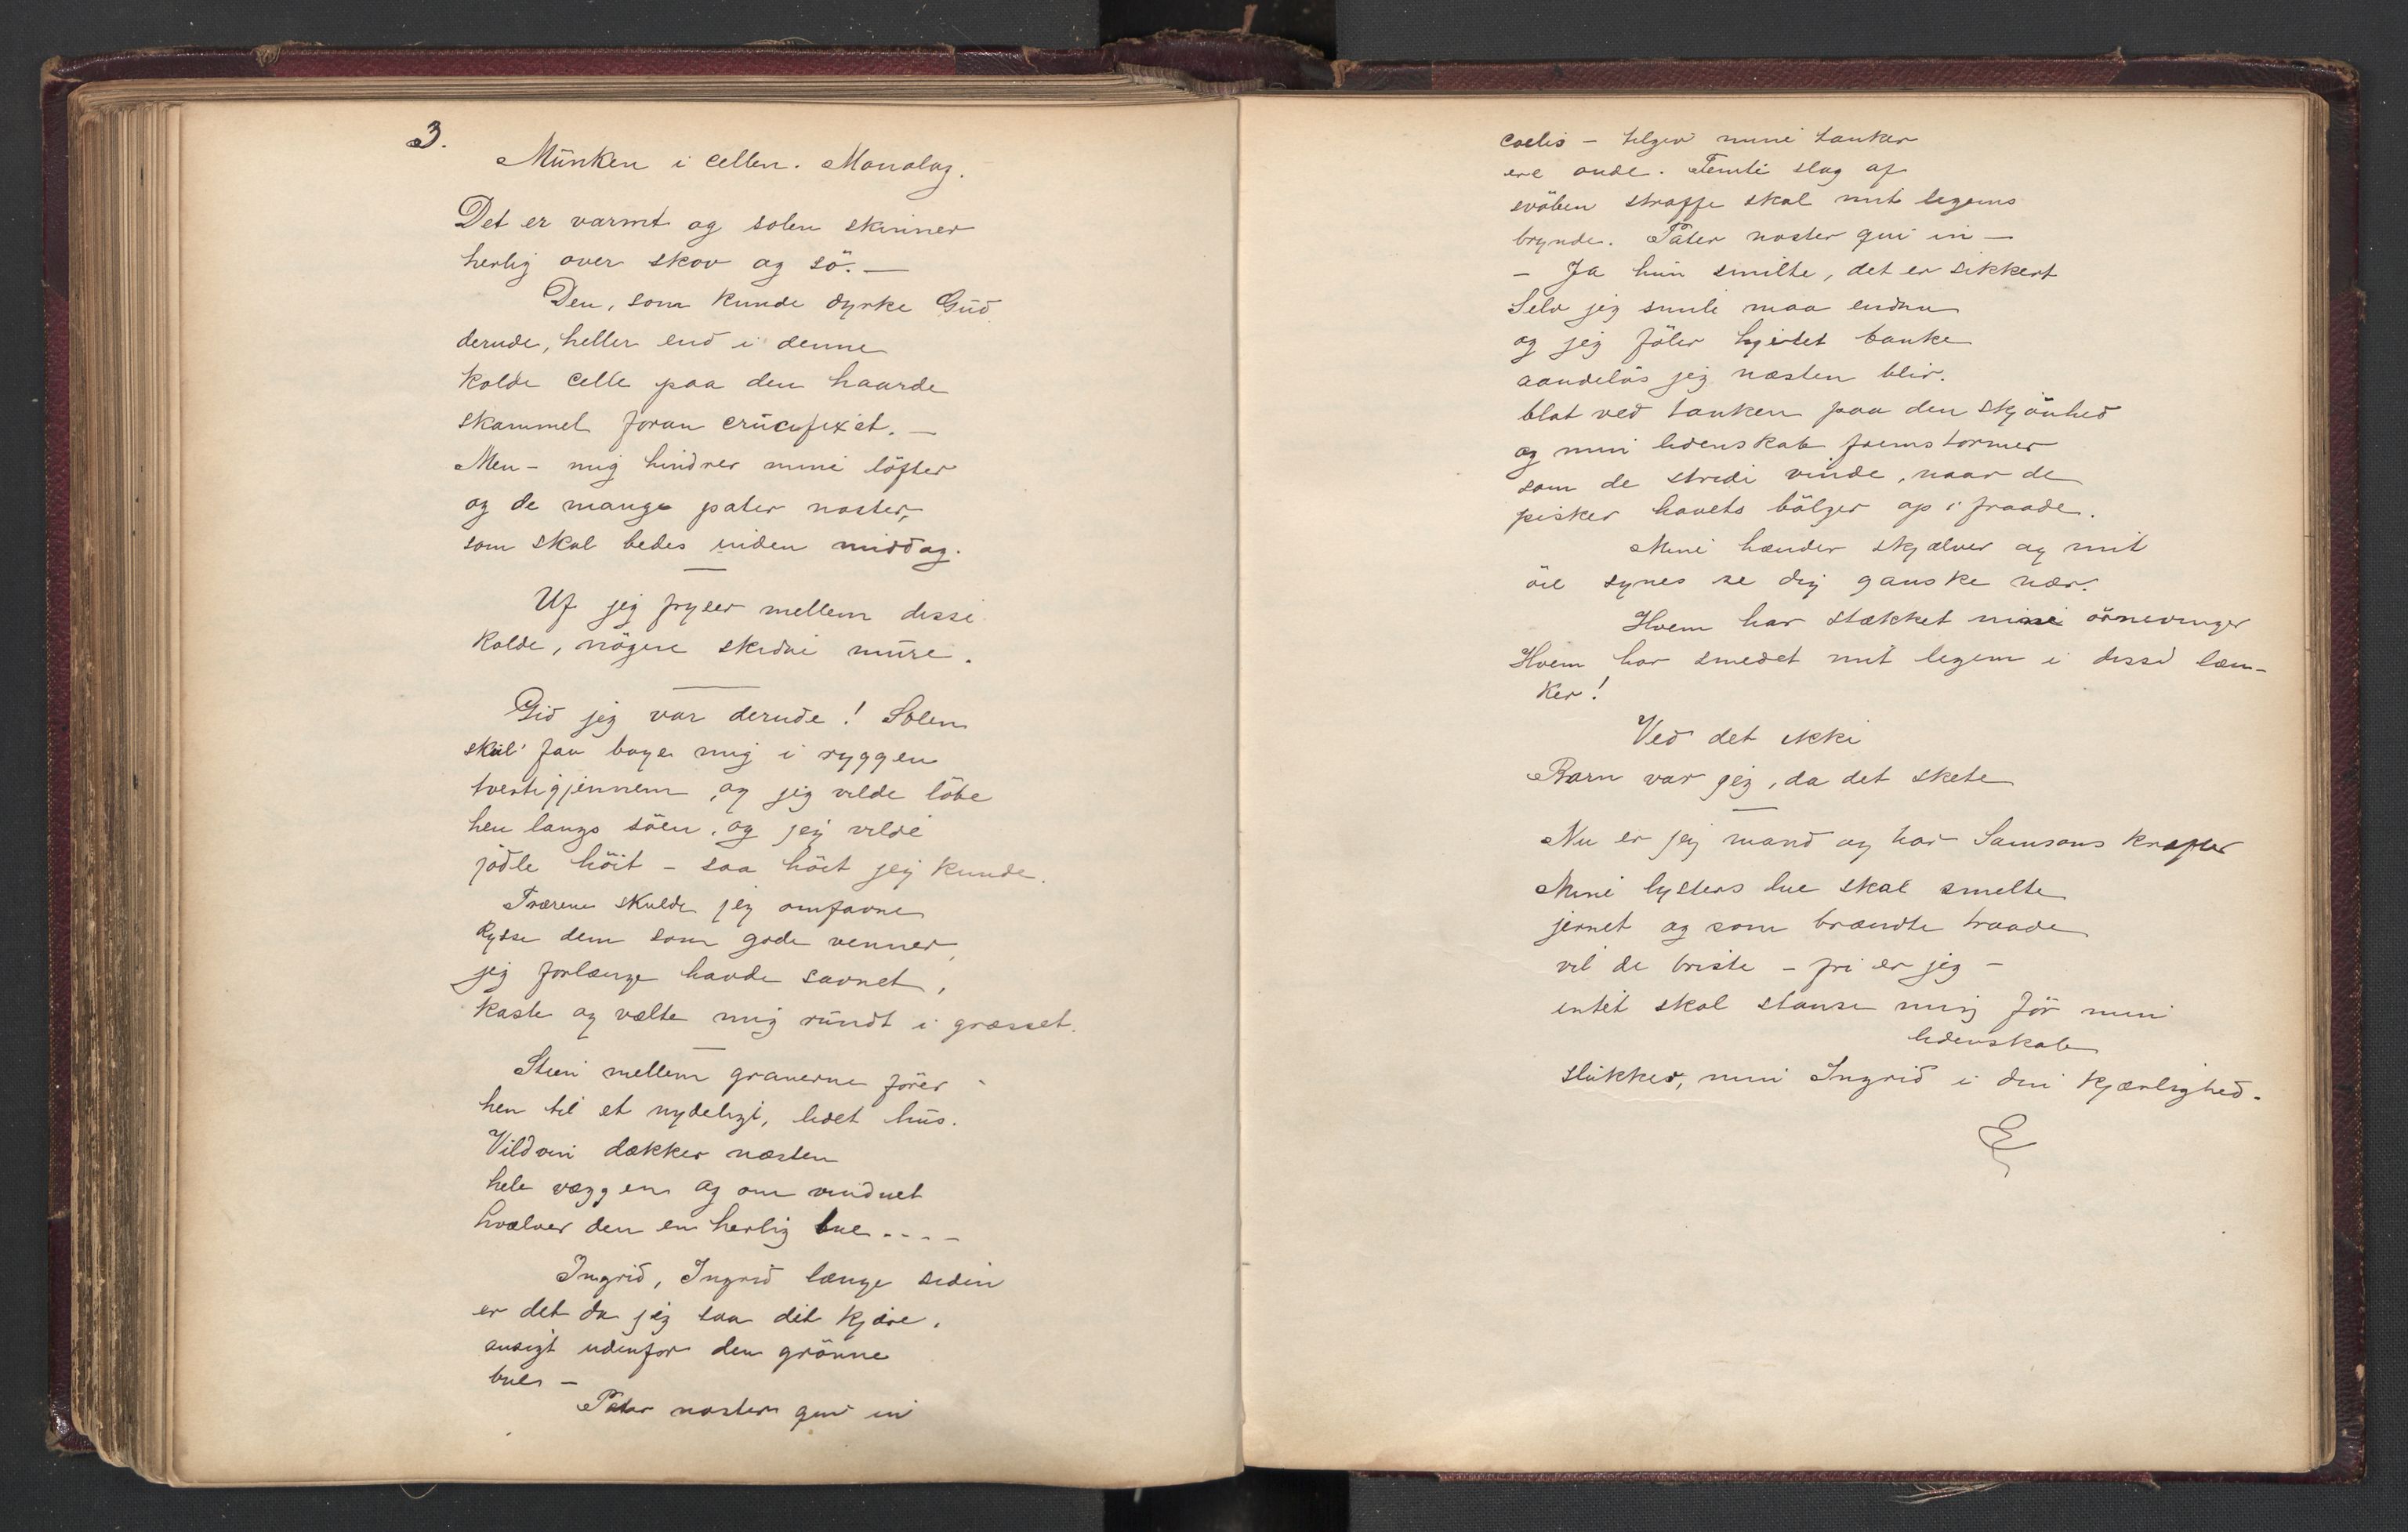 3.
Munken i cellen. Monolog.
Det er varmt og solen skinner
herlig over skov og sö. —
Den, som kunde dyrke Gud
derude, heller end i denne
kolde celle paa den haarde
skammel foran crucifixet. —
Men – mig hindrer mine löfter
og de mange pater noster,
som skal bedes inden middag.
Uf jeg fryser mellem disse
kolde, nögne skidne mure.
Gid jeg var derude! Solen
skul' faa bage mig i ryggen
tvertigjennem, og jeg vilde löbe
hen langs söen, og jeg vilde
jodle höit – saa höit jeg kunde.
Trærene skulde jeg omfavne
Kysse dem som gode venner,
jeg forlænge havde savnet,
kaste og vælte mig rundt i græsset.
Stien mellem granerne förer
hen til et nydeligt, lidet hus.
Vildvin dækker næsten
hele væggen og om vinduet
hvælver den en herlig bue . . . –
Ingrid, Ingrid længe siden
er det da jeg saa dit kjære,
ansigt udenfor den grönne
bue –
Pater noster qui in
coelis – tilgiv mine tanker
ere onde. Femti slag af
svöben straffe skal mit legems
brynde. Pater noster qui in —
– Ja hun smilte, det er sikkert
Selv jeg smile maa endnu
og jeg föler hjertet banke
aandelös jeg næsten blir.
blot ved tanken paa den skjönhed
og min lidenskab fremstormer
som de stride vinde, naar de
pisker havets bölger op i fraade.
Mine hænder skjælver og mit
öie synes se dig ganske nær.
Hvem har stækket mine örnevinger
Hvem har smedet mit legem i disse læn-
ker!
Ved det ikke
Barn var jeg, da det skete
Nu er jeg mand og har Samsons kræfter
Mine lysters lue skal smelte
jernet og som brændte traade
vil de briste – fri er jeg –
intet skal stanse mig för min
lidenskab
slukkes, min Ingrid i din kjærlighed.
E